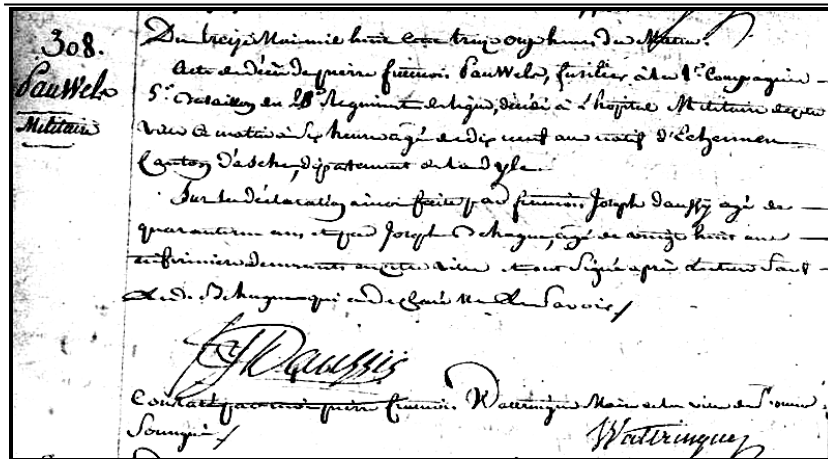 308.
Pauwels
Militaire
Du treize Mai mil huit cent treize onze heures du Matin.
Acte de décès de pierre francois Pauwels, fusilier à la 1e Compagnie
5e Bataillon du 28e Regiment de ligne, décédé à l'hopital Militaire de cette
ville ce matin à six heures agé de dix neuf ans natif d'Echermen
Canton d'asche, département de la dyle.
Sur la déclaration à moi faite par francois Joseph daussy agé de
quarante un ans et par Joseph Dehague, agé de vingt huit ans
infirmiers demeurants en cette ville et ont Signé après lecture Sauf
Led. Dehague qui a declaré ne le Savoir /
Daussis
Constaté par moi pierre francois Wattringue Maire de la ville de St omer
Soussigné /
Wattringue